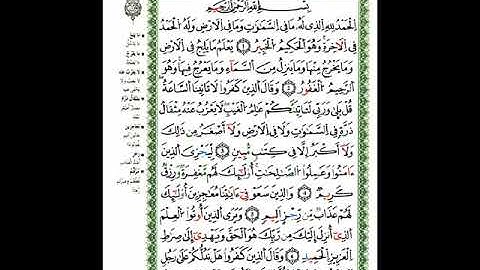 بِسْمِ اللَّهِ الرَّحْمَٰنِ الرَّحِيمِ
الْحَمْدُ لِلَّهِ الَّذِي لَهُ مَا فِي السَّمَٰوَٰتِ وَمَا فِي الْأَرْضِ وَلَهُ الْحَمْدُ
فِي الْآخِرَةِ وَهُوَ الْحَكِيمُ الْخَبِيرُ ١ يَعْلَمُ مَا يَلِجُ فِي الْأَرْضِ
وَمَا يَخْرُجُ مِنْهَا وَمَا يَنزِلُ مِنَ السَّمَاءِ وَمَا يَعْرُجُ فِيهَا وَهُوَ
الرَّحِيمُ الْغَفُورُ ٢ وَقَالَ الَّذِينَ كَفَرُوا لَا تَأْتِينَا السَّاعَةُ
قُلْ بَلَىٰ وَرَبِّي لَتَأْتِيَنَّكُمْ عَٰلِمِ الْغَيْبِ لَا يَعْزُبُ عَنْهُ مِثْقَالُ
ذَرَّةٍ فِي السَّمَٰوَٰتِ وَلَا فِي الْأَرْضِ وَلَا أَصْغَرُ مِن ذَٰلِكَ
وَلَا أَكْبَرُ إِلَّا فِي كِتَٰبٍ مُّبِينٍ ٣ لِّيَجْزِيَ الَّذِينَ
ءَامَنُوا وَعَمِلُوا الصَّٰلِحَٰتِ أُولَٰئِكَ لَهُم مَّغْفِرَةٌ وَرِزْقٌ
كَرِيمٌ ٤ وَالَّذِينَ سَعَوْ فِي ءَايَٰتِنَا مُعَٰجِزِينَ أُولَٰئِكَ
لَهُمْ عَذَابٌ مِّن رِّجْزٍ أَلِيمٌ ٥ وَيَرَى الَّذِينَ أُوتُوا الْعِلْمَ
الَّذِي أُنزِلَ إِلَيْكَ مِن رَّبِّكَ هُوَ الْحَقَّ وَيَهْدِي إِلَىٰ صِرَٰطِ
الْعَزِيزِ الْحَمِيدِ ٦ وَقَالَ الَّذِينَ كَفَرُوا هَلْ نَدُلُّكُمْ عَلَىٰ رَجُلٍ